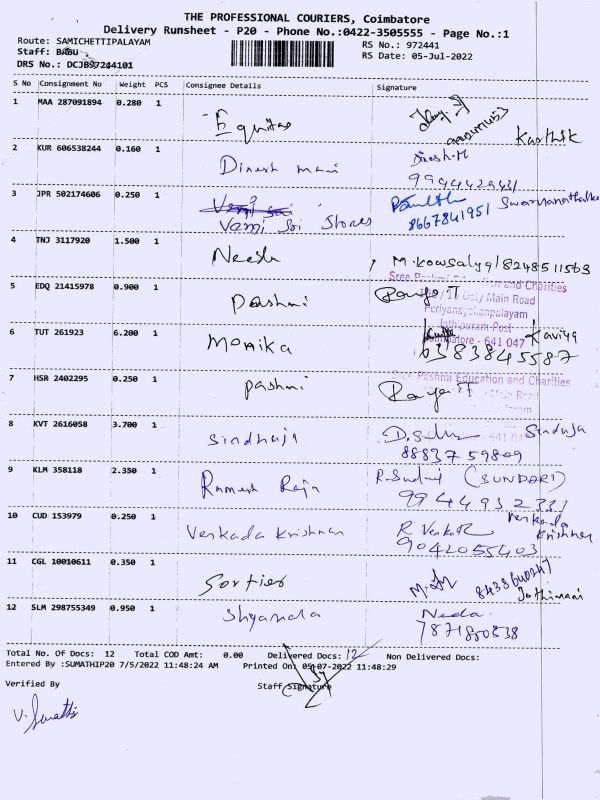 THE PROFESSIONAL COURIERS, Coimbatore
Delivery Runsheet - P20 - Phone No.:0422-3505555 - Page No.:1
Route: SAMICHETTIPALAYAM
RS No.: 972441
Staff: BABU
RS Date: 05-Jul-2022
DRS No.: DCJB97244101
S No Consignment No Weight PCS Consignee Details Signature
1 MAA 287091894 0.280 1 Equitas Karthik
2 KUR 606538244 0.160 1 Dinesh mani Dinesh.M
3 JPR 502174606 0.250 1 Vemi Sri Stores 8667841951
4 TNJ 3117920 1.500 1 Neesh M.Kowsalya/8248511563
Sree Pashmi Education and Charities
Main Road
5 EDQ 21415978 0.900 1 Pashmi
Periyanaickenpalayam
Jothipuram Post
6 TUT 261923 6.200 1 Monika Kaviya
Coimbatore - 641 047
6383845587
7 HSR 2402295 0.250 1 Pashmi
Sree Pashmi Education and Charities
Main Road
8 KVT 2616058 3.700 1 Sindhuja Sinduja
8883759809
9 KLM 358118 2.350 1 Ramesh Raja (SUNDARI)
10 CUD 153979 0.250 1 Venkada Krishnan R. Venkat Venkada Krishnan
9042055403
11 CGL 10010611 0.350 1 Sortief Jothimani
12 SLM 298755349 0.950 1 Shyamala Neela
Total No. Of Docs: 12 Total COD Amt: 0.00 Delivered Docs: 12 Non Delivered Docs:
Entered By :SUMATHIP20 7/5/2022 11:48:24 AM Printed On: 05-07-2022 11:48:29
Verified By Staff Signature